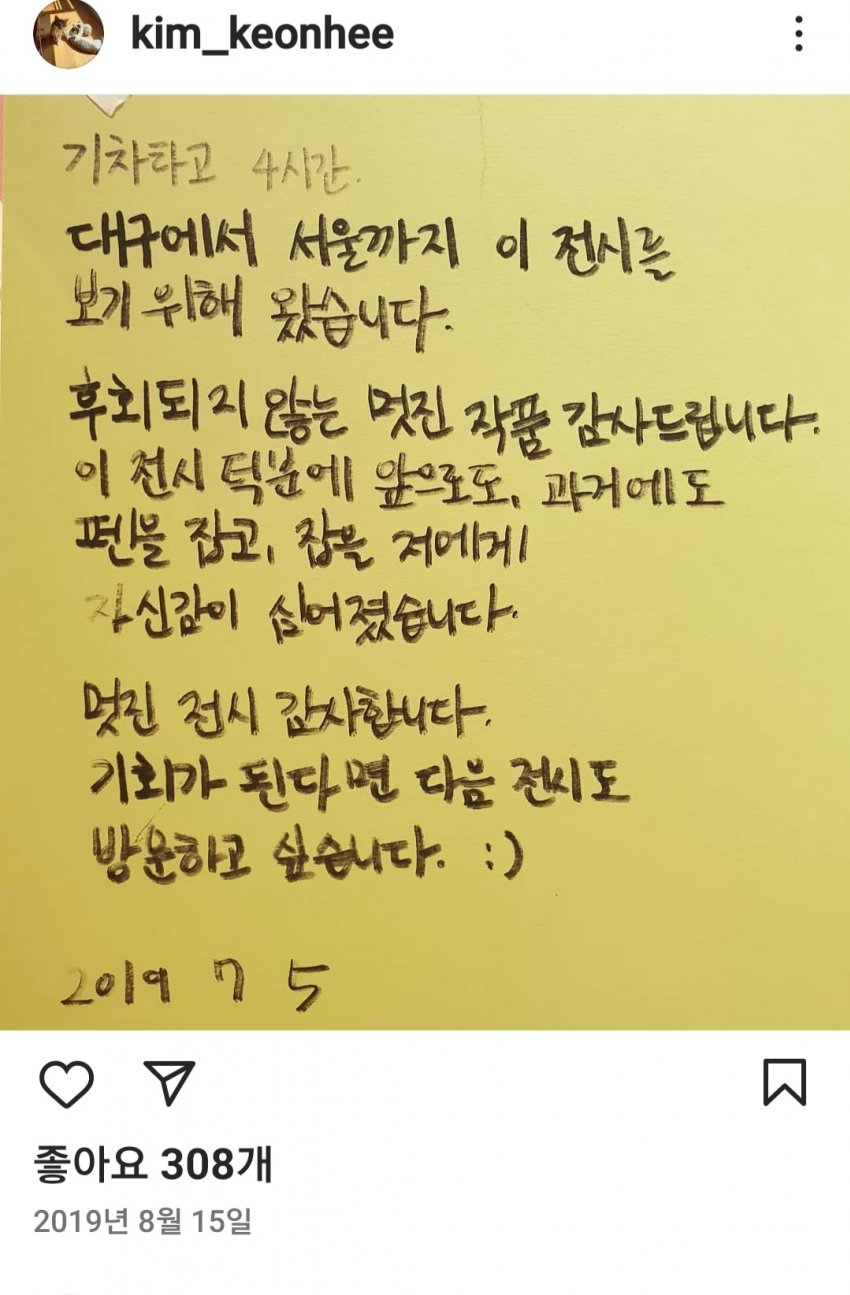 kim_keonhee
기차타고 4시간.
대구에서 서울까지 이 전시를
보기 위해 왔습니다.
후회되지 않는 멋진 작품 감사드립니다.
이 전시 턱분에 앞으로도, 과거에도
펜을 잡고, 잡을 저에게
자신감이 심어졌습니다.
멋진 전시 감사합니다.
기회가 된다면 다음 전시도
방문하고 싶습니다. :)
2019 7 5
좋아요 308개
2019년 8월 15일